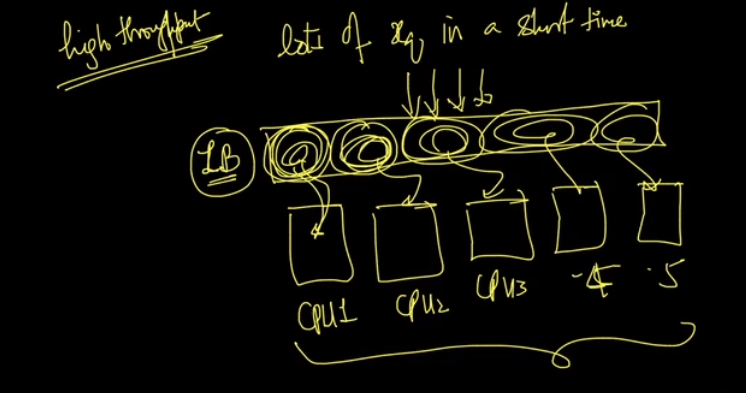 high throughput
lots of req in a short time
LB
CPU1 CPU2 CPU3 -4 -5